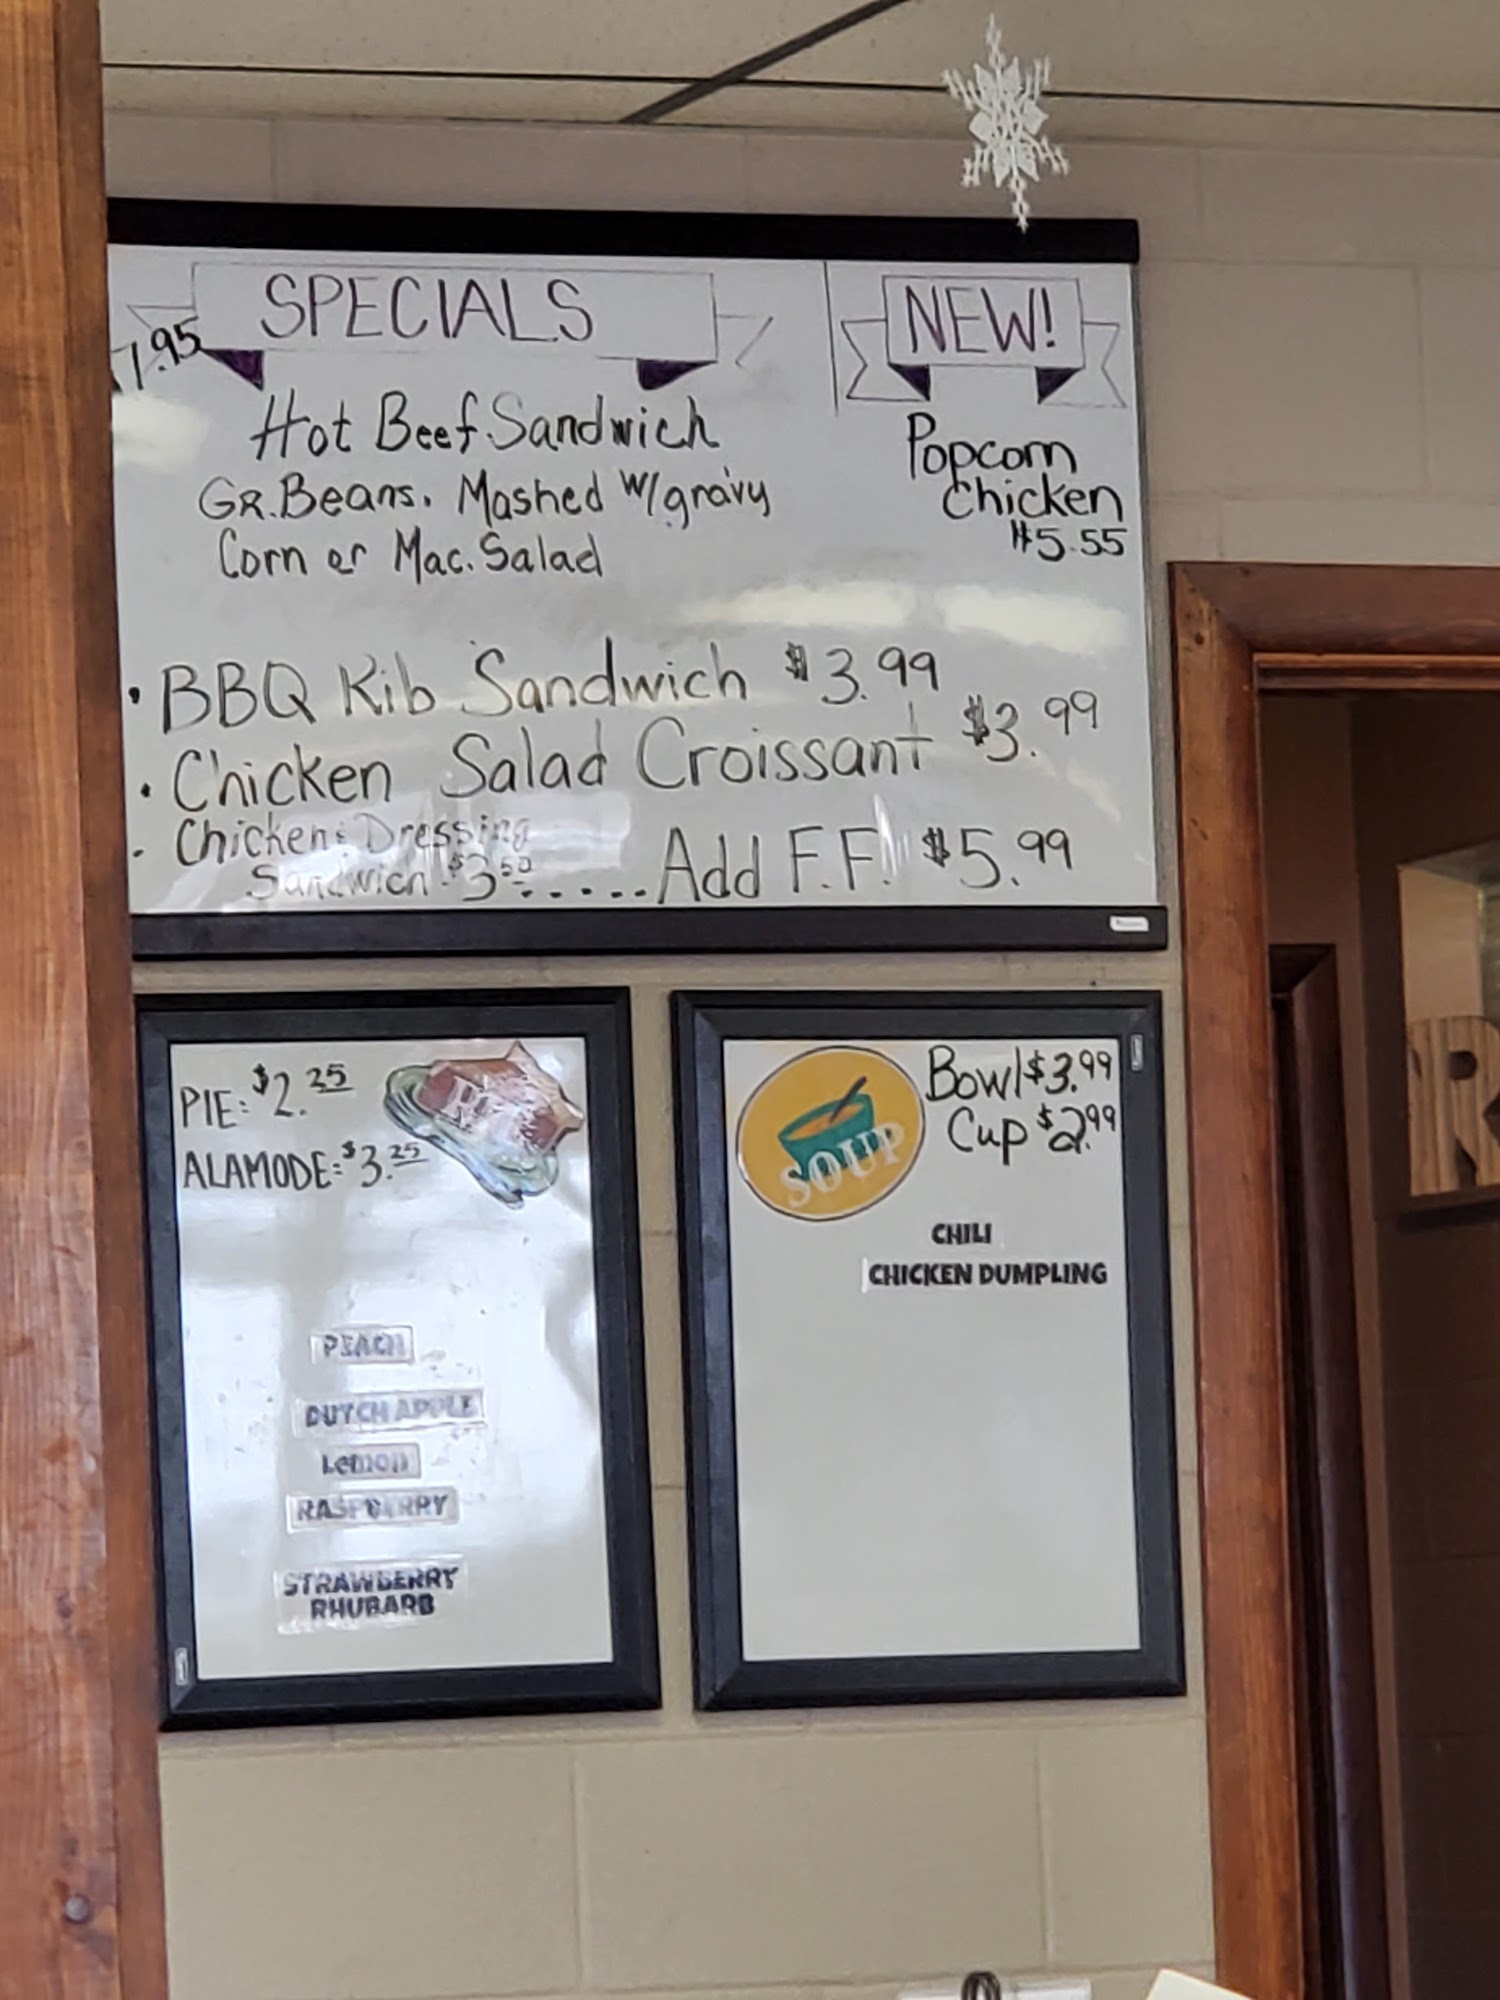 SPECIALS
7.95
Hot Beef Sandwich
GR. Beans. Mashed w/gravy
Corn or Mac. Salad
NEW!
Popcorn
Chicken
$5.55
• BBQ Rib Sandwich $3.99
• Chicken Salad Croissant $3.99
- Chicken & Dressing
Sandwich $3.50 ..... Add F.F. $5.99
PIE: $2.25
ALAMODE: $3.25
PEACH
DUTCH APPLE
Lemon
RASPBERRY
STRAWBERRY
RHUBARB
SOUP
Bowl $3.99
Cup $2.99
CHILI
CHICKEN DUMPLING
R